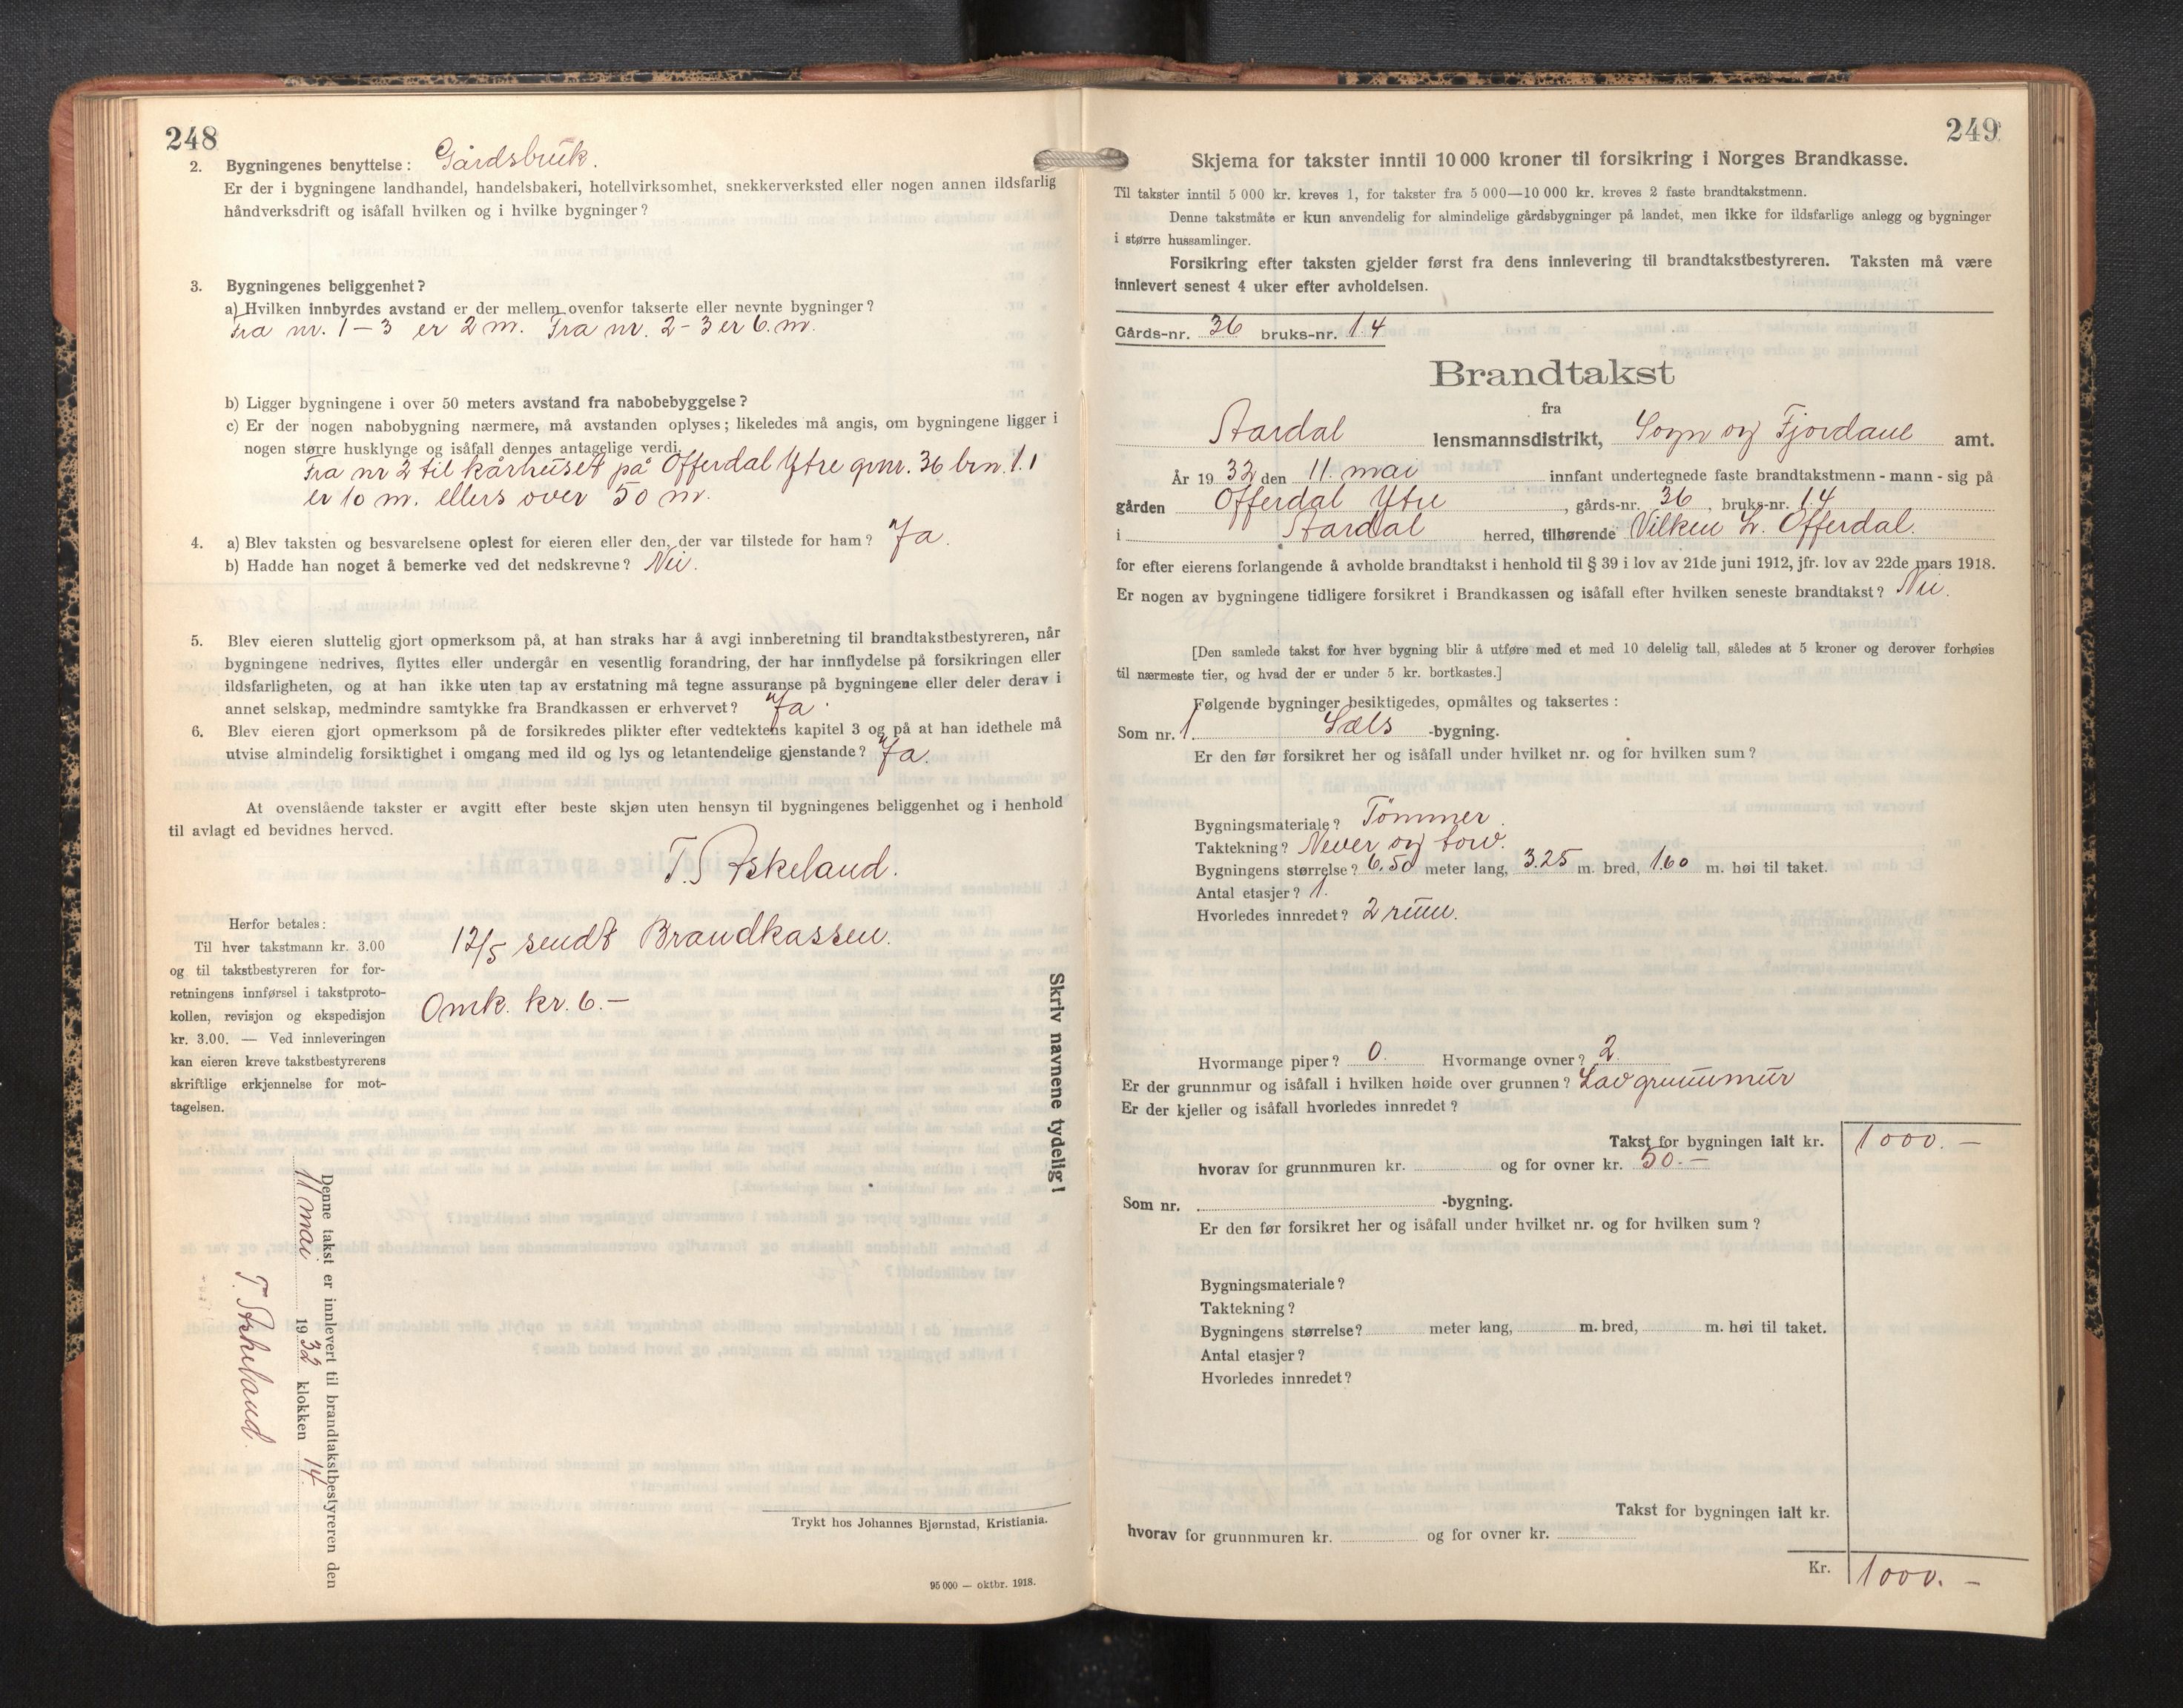 248
2. Bygningenes benyttelse: Gårdsbruk.
Er der i bygningene landhandel, handelsbakeri, hotellvirksomhet, snekkerverksted eller nogen annen ildsfarlig
håndverksdrift og isåfall hvilken og i hvilke bygninger?
3. Bygningenes beliggenhet?
a) Hvilken innbyrdes avstand er der mellem ovenfor takserte eller nevnte bygninger?
Fra nr. 1 - 3 er 2 m. Fra nr. 2 - 3 er 6. m.
b) Ligger bygningene i over 50 meters avstand fra nabobebyggelse?
c) Er der nogen nabobygning nærmere, må avstanden oplyses; likeledes må angis, om bygningene ligger i
nogen større husklynge og isåfall dennes antagelige verdi.
Fra nr 2 til kårhuset på Offerdal Ytre grnr. 36 brn. 1.1
er 10 m. ellers over 50 m.
4. a) Blev taksten og besvarelsene oplest for eieren eller den, der var tilstede for ham? Ja.
b) Hadde han noget å bemerke ved det nedskrevne? Nei.
5. Blev eieren sluttelig gjort opmerksom på, at han straks har å avgi innberetning til brandtakstbestyreren, når
bygningene nedrives, flyttes eller undergår en vesentlig forandring, der har innflydelse på forsikringen eller
ildsfarligheten, og at han ikke uten tap av erstatning må tegne assuranse på bygningene eller deler derav i
annet selskap, medmindre samtykke fra Brandkassen er erhvervet? Ja.
6. Blev eieren gjort opmerksom på de forsikredes plikter efter vedtektens kapitel 3 og på at han idethele må
utvise almindelig forsiktighet i omgang med ild og lys og letantendelige gjenstande? Ja.
At ovenstående takster er avgitt efter beste skjøn uten hensyn til bygningenes beliggenhet og i henhold
til avlagt ed bevidnes herved.
T. Askeland.
Herfor betales:
Til hver takstmann kr. 3.00
og til takstbestyreren for for-
retningens innførsel i takstproto-
kollen, revisjon og ekspedisjon
kr. 3.00. — Ved innleveringen
kan eieren kreve takstbestyrerens
skriftlige erkjennelse for mot-
tagelsen.
12/5 sendt Brandkassen.
Omk. kr. 6. —
Skriv navnene tydelig!
Denne takst er innlevert til brandtakstbestyreren den
11 mai 1932 klokken 14.
T. Askeland.
Trykt hos Johannes Bjørnstad, Kristiania.
95 000 — oktbr. 1918.
249
Skjema for takster inntil 10 000 kroner til forsikring i Norges Brandkasse.
Til takster inntil 5 000 kr. kreves 1, for takster fra 5 000—10 000 kr. kreves 2 faste brandtakstmenn.
Denne takstmåte er kun anvendelig for almindelige gårdsbygninger på landet, men ikke for ildsfarlige anlegg og bygninger
i større hussamlinger.
Forsikring efter taksten gjelder først fra dens innlevering til brandtakstbestyreren. Taksten må være
innlevert senest 4 uker efter avholdelsen.
Gårds-nr. 36 bruks-nr. 14
Brandtakst
fra
Aardal lensmannsdistrikt, Sogn og Fjordane amt.
År 1932 den 11. mai innfant undertegnede faste brandtakstmenn - mann - sig på
gården Offerdal Ytre, gårds-nr. 36, bruks-nr. 14
i Aardal herred, tilhørende Vilken L. Offerdal.
for efter eierens forlangende å avholde brandtakst i henhold til § 39 i lov av 21de juni 1912, jfr. lov av 22de mars 1918.
Er nogen av bygningene tidligere forsikret i Brandkassen og isåfall efter hvilken seneste brandtakst? Nei.
[Den samlede takst for hver bygning blir å utføre med et med 10 delelig tall, således at 5 kroner og derover forhøies
til nærmeste tier, og hvad der er under 5 kr. bortkastes.]
Følgende bygninger besiktigedes, opmåltes og taksertes:
Som nr. 1. Sæls -bygning.
Er den før forsikret her og isåfall under hvilket nr. og for hvilken sum?
Bygningsmateriale? Tømmer.
Taktekning? Never og torv.
Bygningens størrelse? 6.50 meter lang, 3.25 m. bred, 1.60 m. høi til taket.
Antal etasjer? 1.
Hvorledes innredet? 2 rum.
Hvormange piper? 0. Hvormange ovner? 2.
Er der grunnmur og isåfall i hvilken høide over grunnen? Lav grunnmur
Er der kjeller og isåfall hvorledes innredet?
Takst for bygningen ialt kr. 1000. —
hvorav for grunnmuren kr. og for ovner kr. 50. —
Som nr. -bygning.
Er den før forsikret her og isåfall under hvilket nr. og for hvilken sum?
Bygningsmateriale?
Taktekning?
Bygningens størrelse? meter lang, m. bred, m. høi til taket.
Antal etasjer?
Hvorledes innredet?
Takst for bygningen ialt kr.
hvorav for grunnmuren kr. og for ovner kr.
Kr. 1000. —